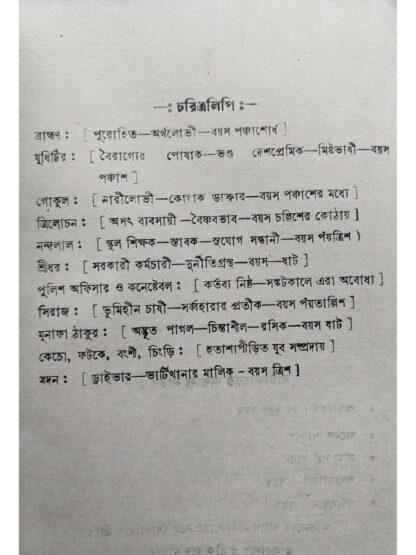 —ঃ চরিত্রলিপি ঃ—
ব্রাহ্মণ : [ পুরোহিত—অর্থলোভী—বয়স পঞ্চাশোর্ধ ]
যুধিষ্ঠির : [ বৈরাগ্যের পোষাক—ভণ্ড দেশপ্রেমিক—মিষ্টভাষী—বয়স
পঞ্চাশ ]
গোকুল : [ নারীলোভী—কোয়াক ডাক্তার—বয়স পঞ্চাশের মধ্যে ]
ত্রিলোচন : [ অসৎ ব্যবসায়ী—বৈষ্ণবভাব—বয়স চল্লিশের কোঠায় ]
নন্দলাল : [ স্কুল শিক্ষক—স্তাবক—সুযোগ সন্ধানী—বয়স পঁয়ত্রিশ )
শ্রীধর : [ সরকারী কর্মচারী—দুর্নীতিগ্রস্থ—বয়স—ষাট ]
পুলিশ অফিসার ও কনেষ্টেবল : [ কর্তব্য নিষ্ঠ—সঙ্কটকালে এরা অবোধ্য ]
সিরাজ : [ ভূমিহীন চাষী—সর্ব্বহারার প্রতীক—বয়স পঁয়তাল্লিশ ]
মুনাফা ঠাকুর : [ অদ্ভুত পাগল—চিন্তাশীল—রসিক—বয়স ষাট ]
কেচো, ফটকে, বংশী, চিংড়ি : [ হতাশাপীড়িত যুব সম্প্রদায় ]
মদন : [ ড্রাইভার—ভাটিখানার মালিক - বয়স ত্রিশ ]